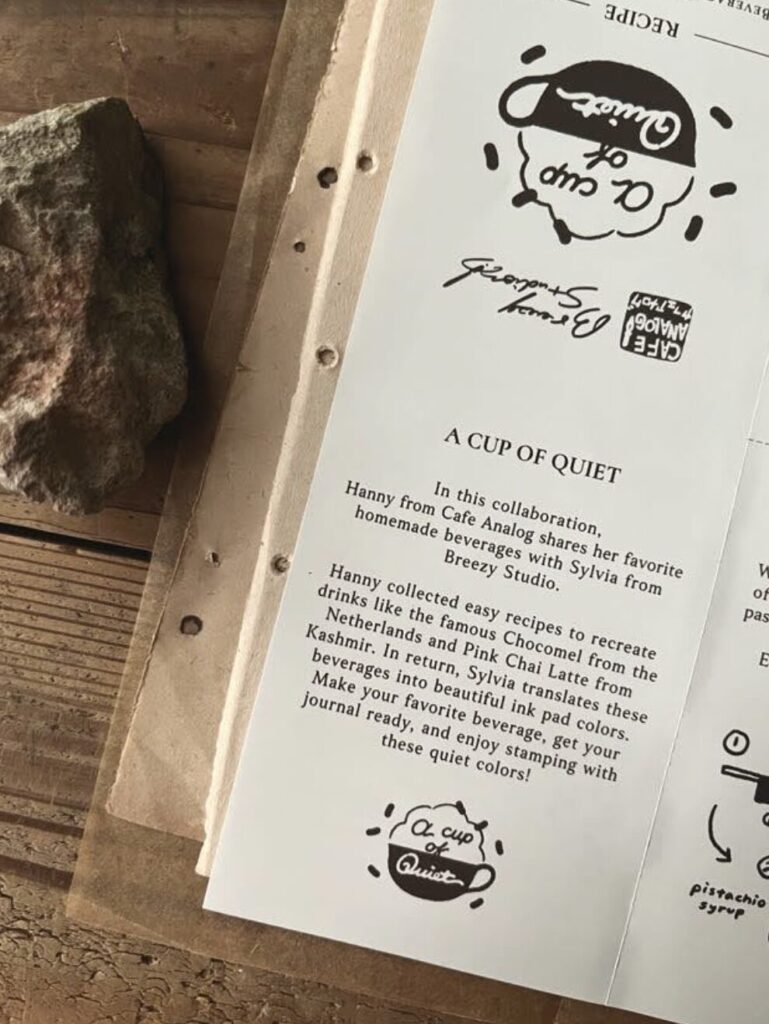 RECIPE
a cup
of
Quiet
Breezy
Studio
CAFE
ANALOG
A CUP OF QUIET
In this collaboration,
Hanny from Cafe Analog shares her favorite
homemade beverages with Sylvia from
Breezy Studio.
Hanny collected easy recipes to recreate
drinks like the famous Chocomel from the
Netherlands and Pink Chai Latte from
Kashmir. In return, Sylvia translates these
beverages into beautiful ink pad colors.
Make your favorite beverage, get your
journal ready, and enjoy stamping with
these quiet colors!
a cup
of
Quiet
1
pistachio
syrup